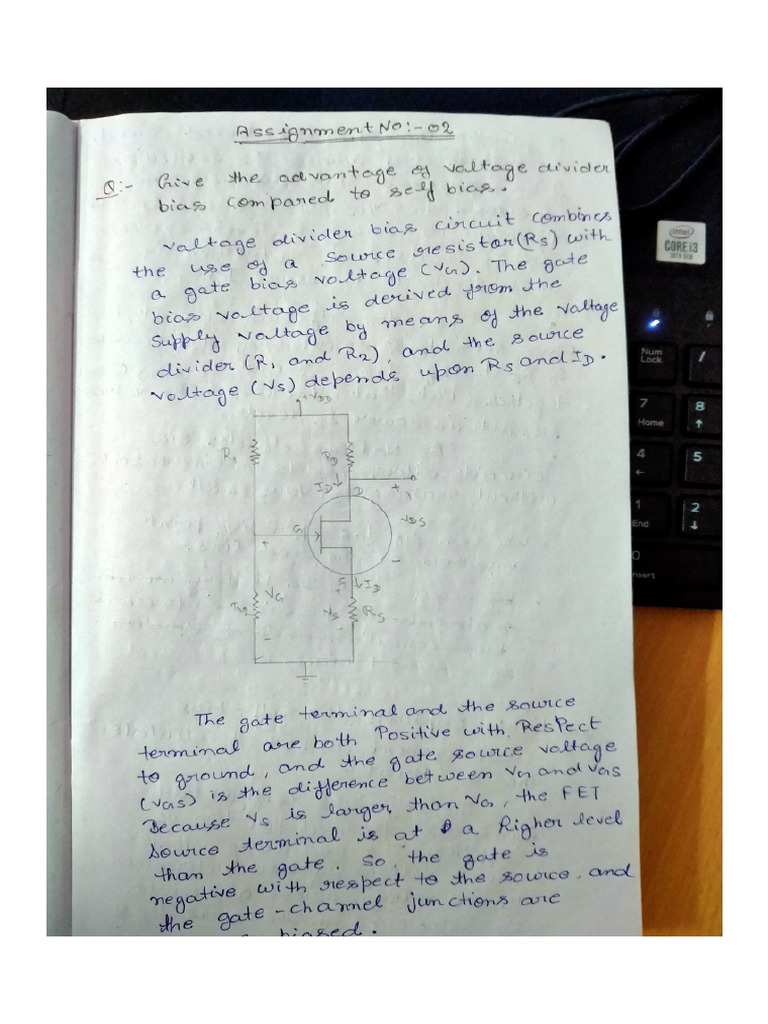 Assignment No:-02
Q:- Give the advantage of voltage divider
bias compared to self bias.
voltage divider bias circuit combines
the use of a source resistor (RS) with
a gate bias voltage (VG). The gate
bias voltage is derived from the
supply voltage by means of the voltage
divider (R1 and R2), and the source
voltage (VS) depends upon RS and ID.
+VDD
R1
RD
ID↓
D
+
VDS
G
+
-
S
↓ID
+
VG
R2
VS
RS
-
-
The gate terminal and the source
terminal are both Positive with Respect
to ground, and the gate source voltage
(VGS) is the difference between VG and VGS
Because VS is larger than VG, the FET
source terminal is at a Righer level
than the gate. So, the gate is
negative with respect to the source, and
the gate-channel junctions are
biased.
intel
CORE i3
10TH GEN
Num
Lock
/
7
Home
8
↑
4
←
5
1
End
2
↓
0
Insert